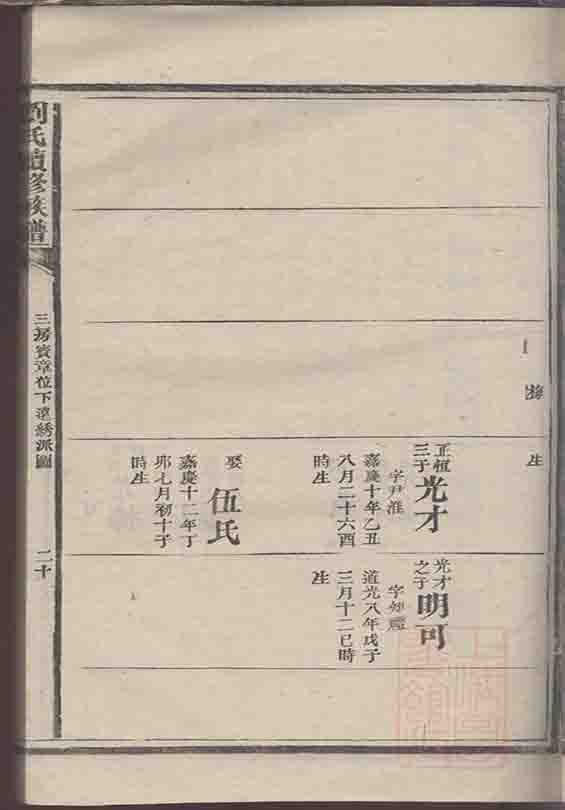 生
正恒
三子
光才
字尹淮
嘉慶十年乙丑
八月二十六酉
時生
娶
伍氏
嘉慶十二年丁
卯七月初十子
時生
光才
之子
明可
道光八年戊子
三月十二巳時
生
劉氏續修族譜
三房賓章位下遠綉派圖
二十